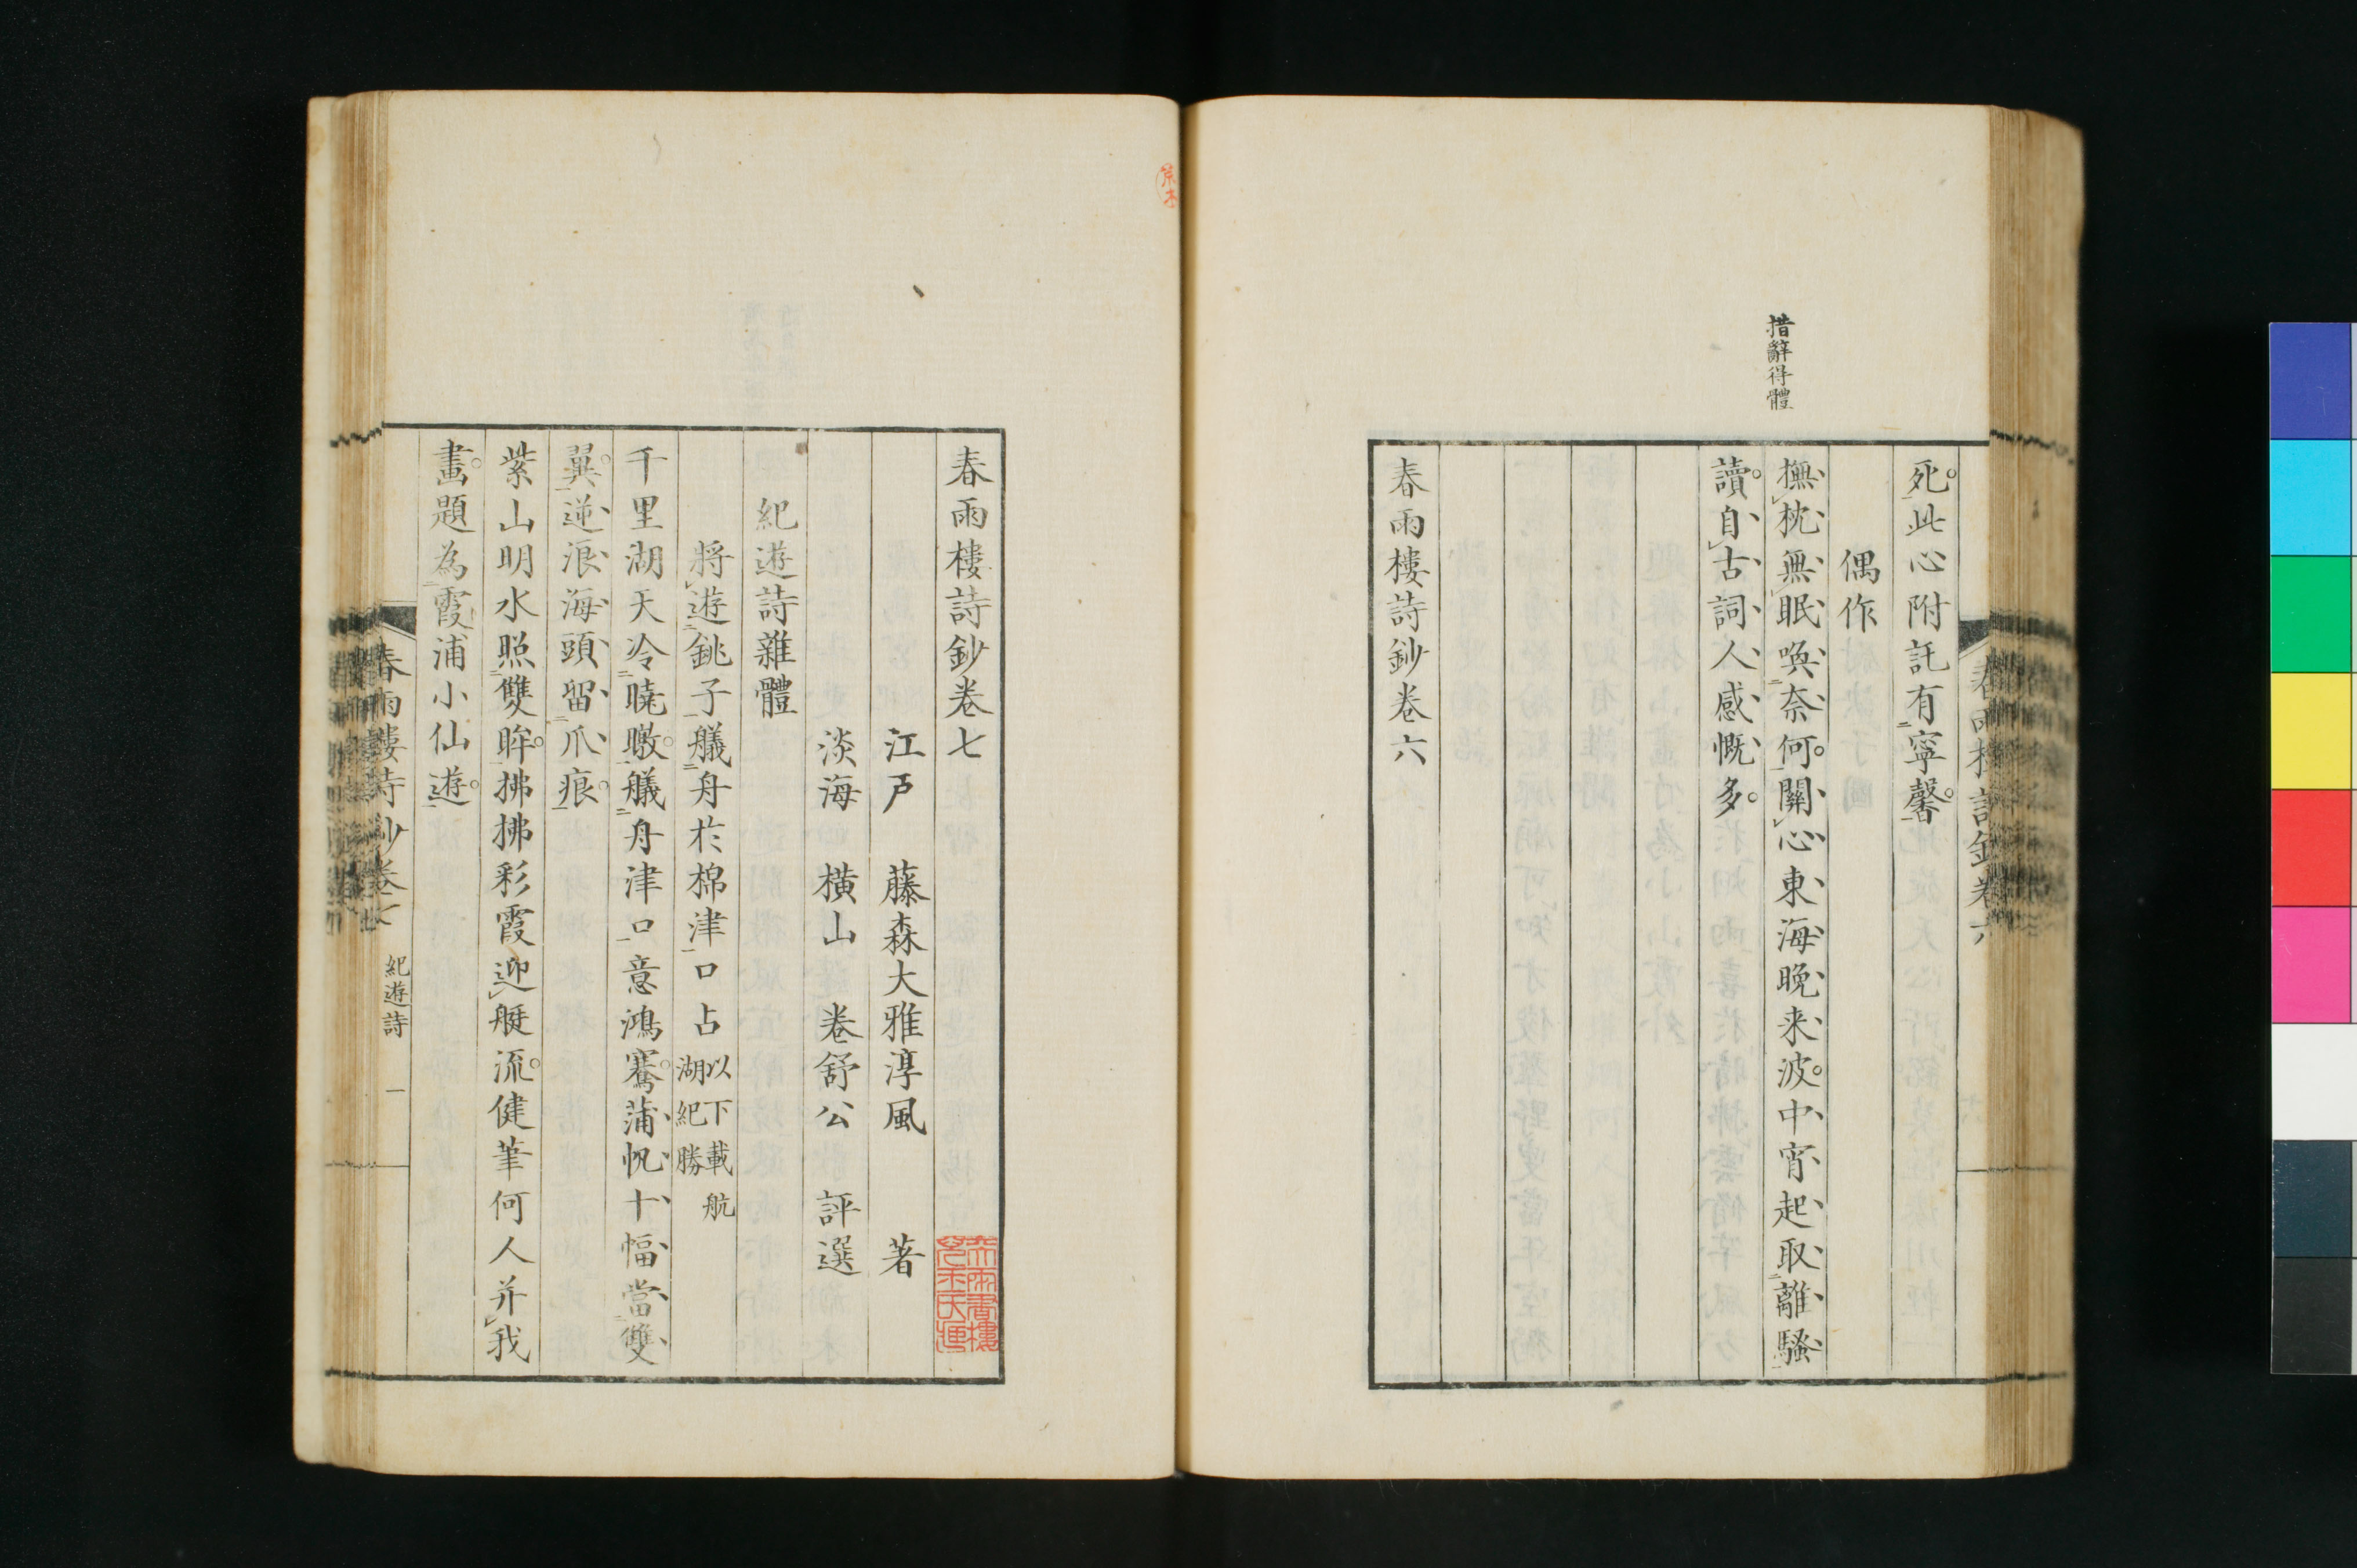 措辭得體
死此心附託有寧馨
偶作
撫枕無眠喚奈何關心東海晚来波中宵起取離騷
讀自古詞人感慨多
春雨樓詩鈔卷六
春雨樓詩鈔卷七
江戸　藤森大雅淳風　著
淡海　横山　卷舒公　評選
紀遊詩雜體
將遊銚子艤舟於棉津口占以下載航
湖紀勝
千里湖天冷曉暾艤舟津口意鴻騫蒲帆十幅當雙
翼逆浪海頭留爪痕
紫山明水照雙眸拂拂彩霞迎艇流健筆何人并我
畫題為霞浦小仙遊
春雨樓詩鈔卷七　紀遊詩　一